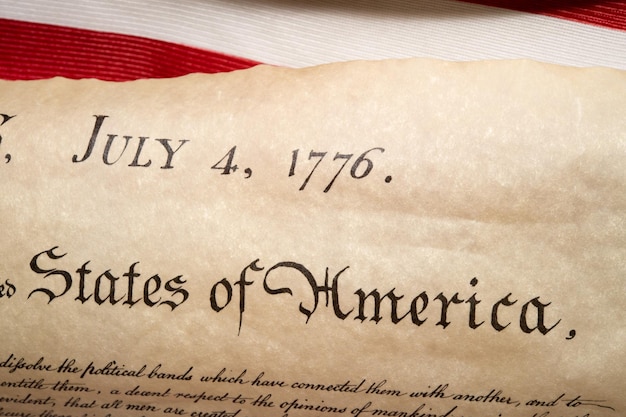 S, JULY 4, 1776.
ed States of America,
dissolve the political bands which have connected them with another, and to
entitle them, a decent respect to the opinions of mankind
evident, that all men are created